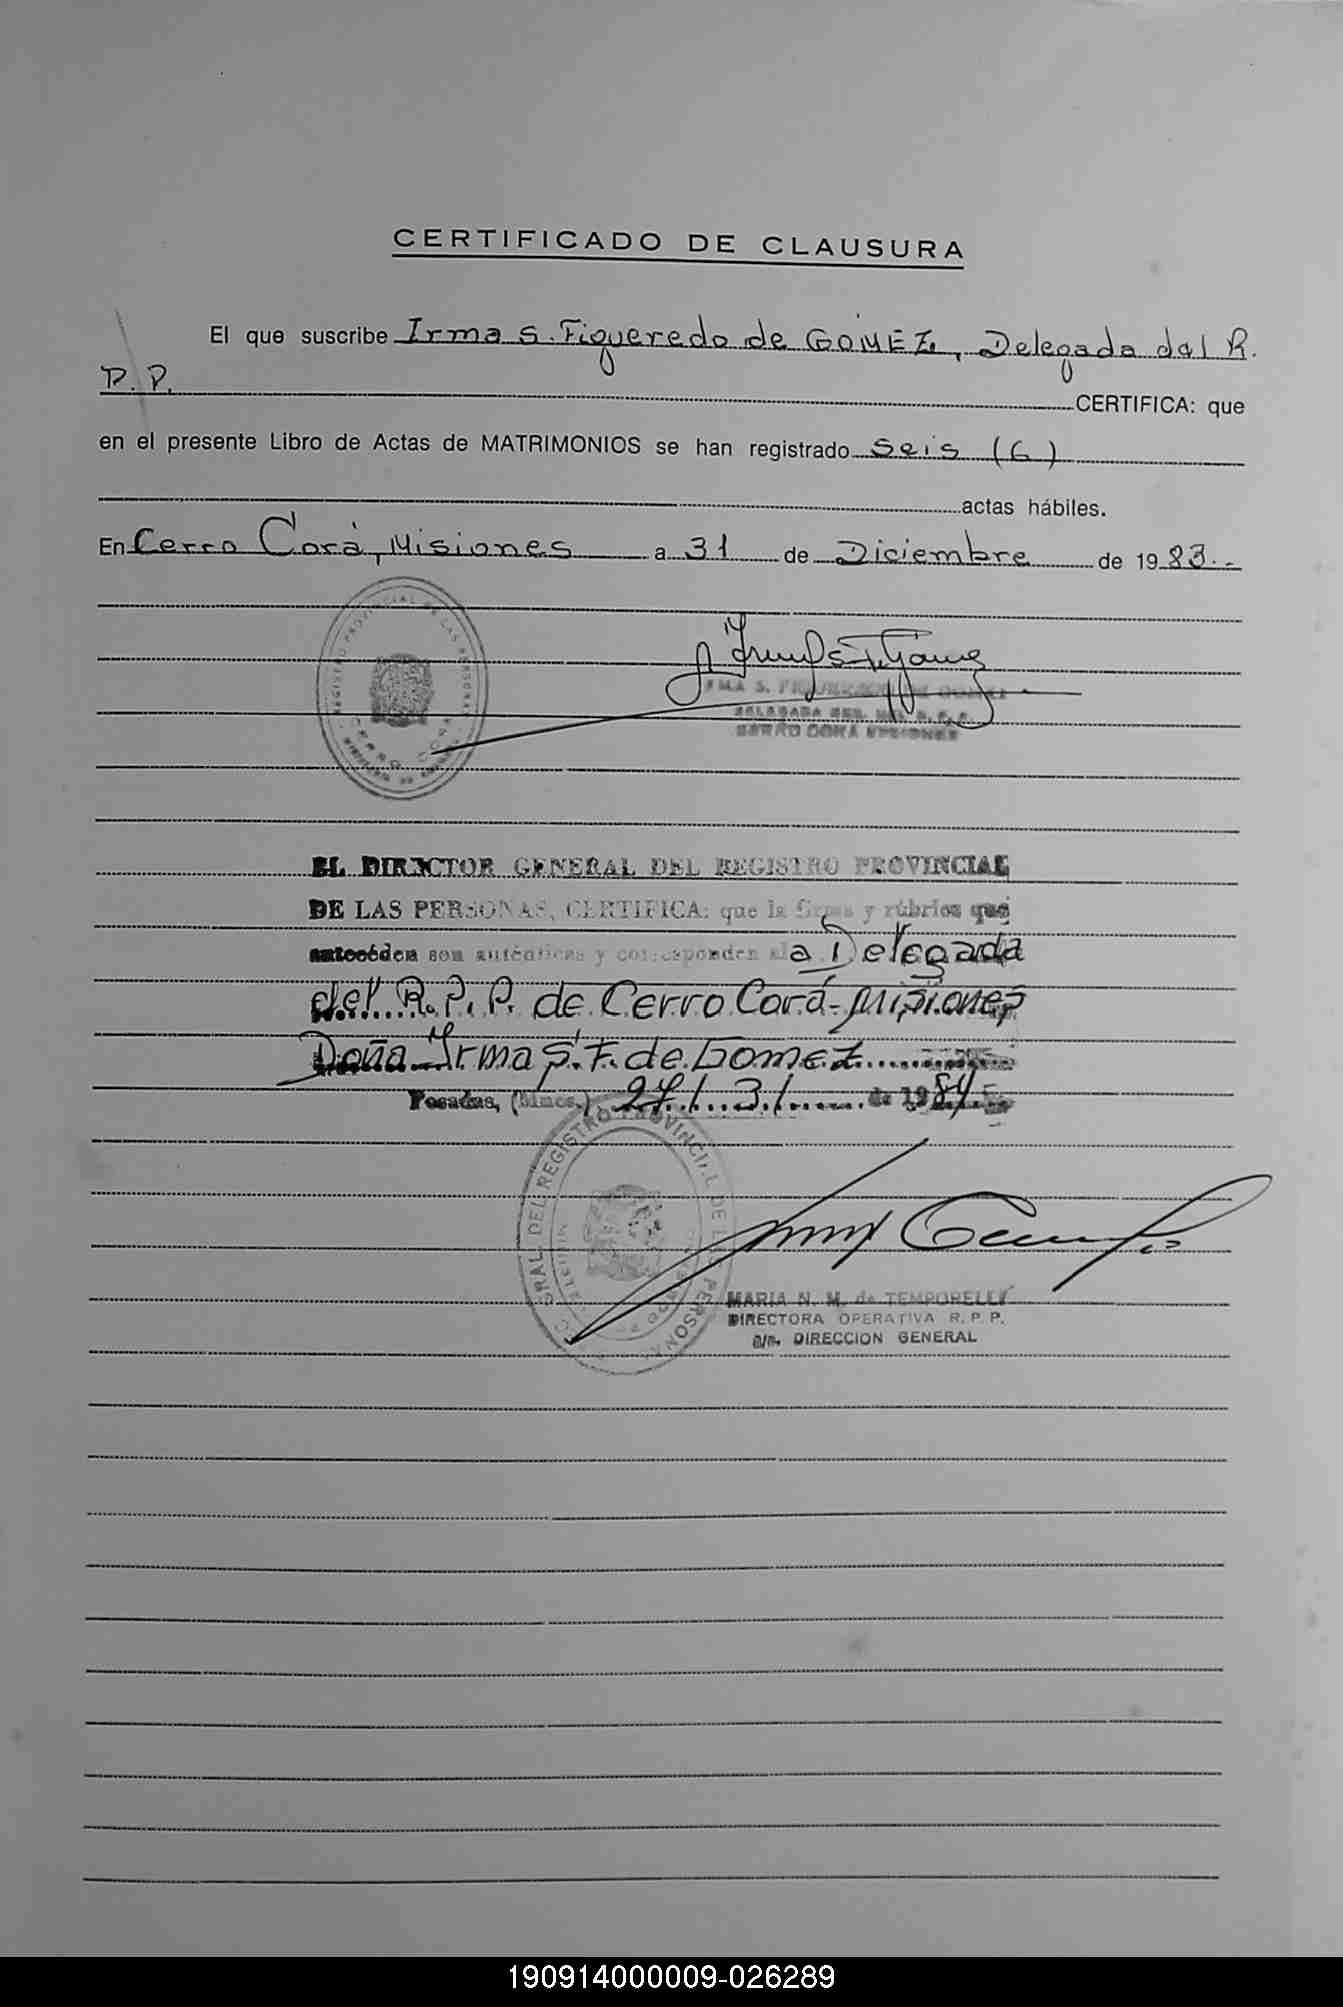 CERTIFICADO DE CLAUSURA
El que suscribe Irma S. Figueredo de GOMEZ, Delegada del R.
P. P. CERTIFICA: que
en el presente Libro de Actas de MATRIMONIOS se han registrado Seis (6)
actas hábiles.
En Cerro Corá, Misiones a 31 de Diciembre de 1983.-
REGISTRO PROVINCIAL DE LAS PERSONAS
CERRO CORA
S. FIGUEREDO DE GOMEZ
DELEGADA
CERRO CORA MISIONES
EL DIRECTOR GENERAL DEL REGISTRO PROVINCIAL
DE LAS PERSONAS, CERTIFICA: que la firma y rúbrica que
anteceden son auténticas y corresponden a la Delegada
del R. P. P. de Cerro Corá - Misiones
Doña Irma S. F. de Gomez
Posadas, (Mnes.) 27/3/ de 1984
GRAL. DEL REGISTRO PROVINCIAL DE LAS PERSONAS
MARIA N. M. de TEMPORELLI
DIRECTORA OPERATIVA R. P. P.
a/c. DIRECCION GENERAL
190914000009-026289